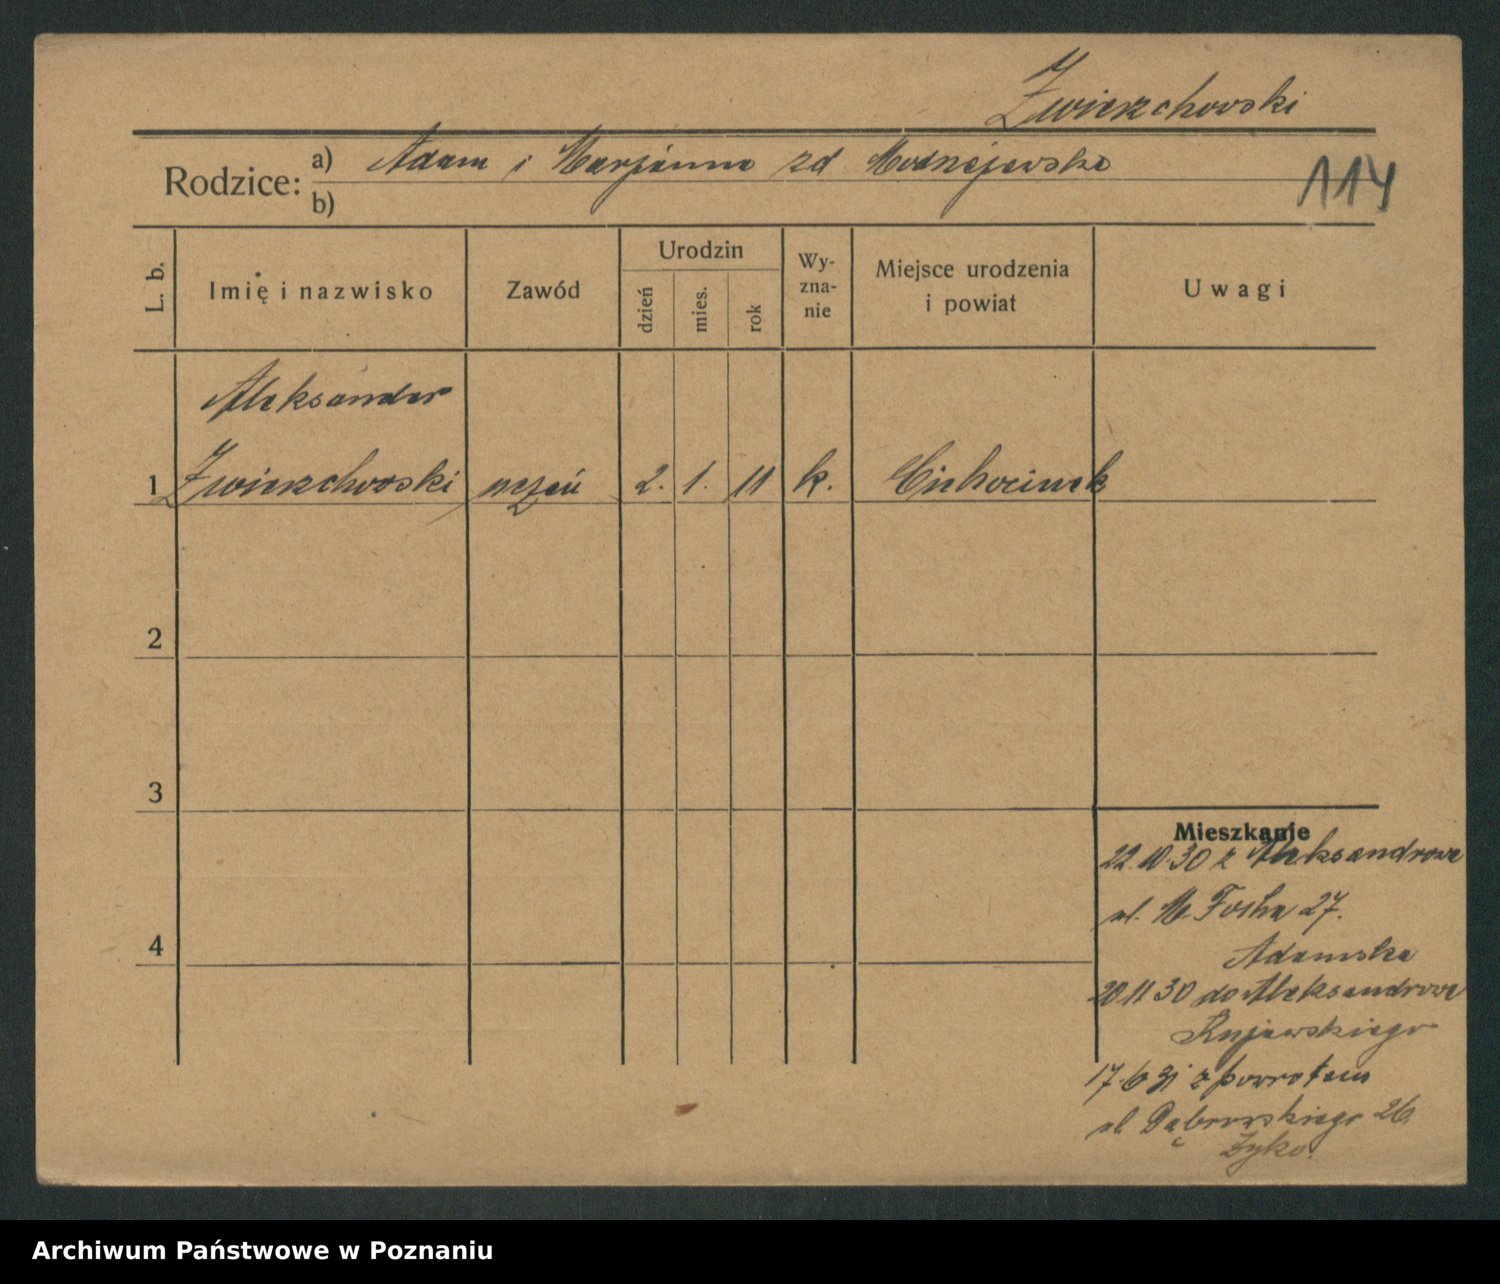 Zwierzchowski
Rodzice: a) Adam i Marjanna zd. Modrzejewska
b)
114
L. b.
Imię i nazwisko
Zawód
Urodzin
dzień
mies.
rok
Wy-
zna-
nie
Miejsce urodzenia
i powiat
Uwagi
Aleksander
1 Zwierzchowski uczeń 2. 1. 11 k. Ciechocinek
2
3
4
Mieszkanie
22.10.30 z Aleksandrowa
ul. M. Focha 27.
Adamska
20 11 30 do Aleksandrowa
Kujawskiego
17.6 31 z powrotem
ul. Dąbrowskiego 26.
Zyko.
Archiwum Państwowe w Poznaniu